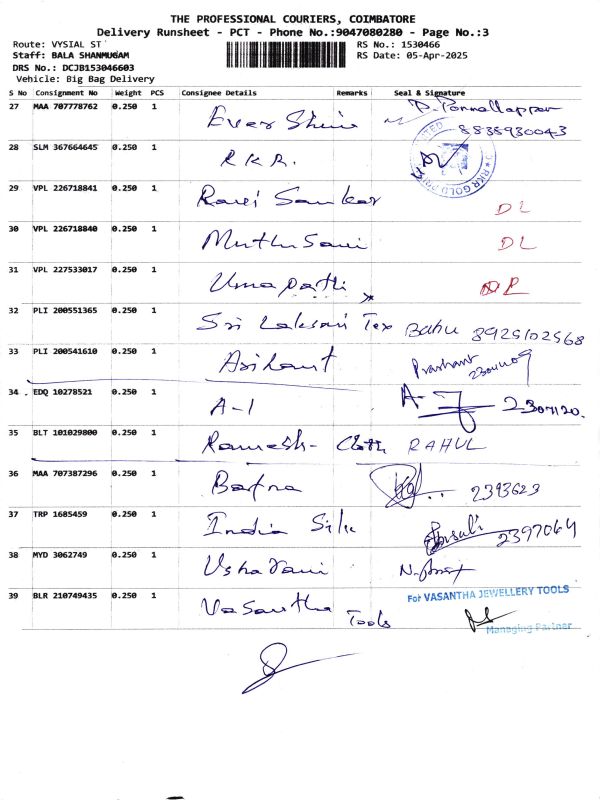 THE PROFESSIONAL COURIERS, COIMBATORE
Delivery Runsheet - PCT - Phone No.:9047080280 - Page No.:3
Route: VYSIAL ST RS No.: 1530466
Staff: BALA SHANMUGAM RS Date: 05-Apr-2025
DRS No.: DCJB153046603
Vehicle: Big Bag Delivery
S No Consignment No Weight PCS Consignee Details Remarks Seal & Signature
27 MAA 707778762 0.250 1 Ever Shine P. Ponnallappan
8838930043
28 SLM 367664645 0.250 1 R.K.R. RKR GOLD
29 VPL 226718841 0.250 1 Ravi Sankar DL
30 VPL 226718840 0.250 1 Muthu Sami DL
31 VPL 227533017 0.250 1 Umapathi DL
32 PLI 200551365 0.250 1 Sri Laksmi Tex Babu 8925102568
33 PLI 200541610 0.250 1 Arihant Prashant
34 EDQ 10278521 0.250 1 A-1 2307120.
35 BLT 101029800 0.250 1 Ramesh Cloth RAHUL
36 MAA 707387296 0.250 1 Bafna 2393623
37 TRP 1685459 0.250 1 India Silk 2397064
38 MYD 3062749 0.250 1 Usha Rani
39 BLR 210749435 0.250 1 Vasantha Tools For VASANTHA JEWELLERY TOOLS
Managing Partner